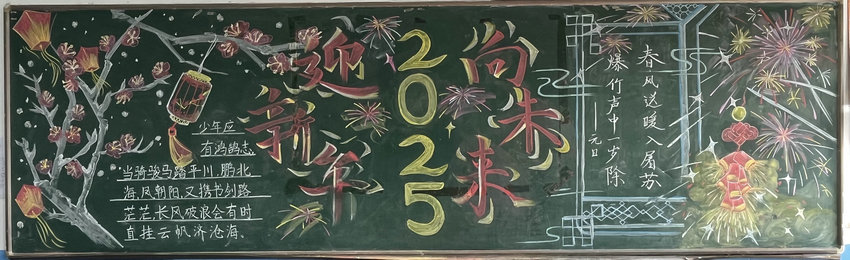 少年应
有鸿鹄志、
当骑骏马踏平川.鹏北
海,凤朝阳.又携书剑路
茫茫,长风破浪会有时
直挂云帆济沧海、
迎新年
2025
向未来
春风送暖入屠苏
爆竹声中一岁除
——元日